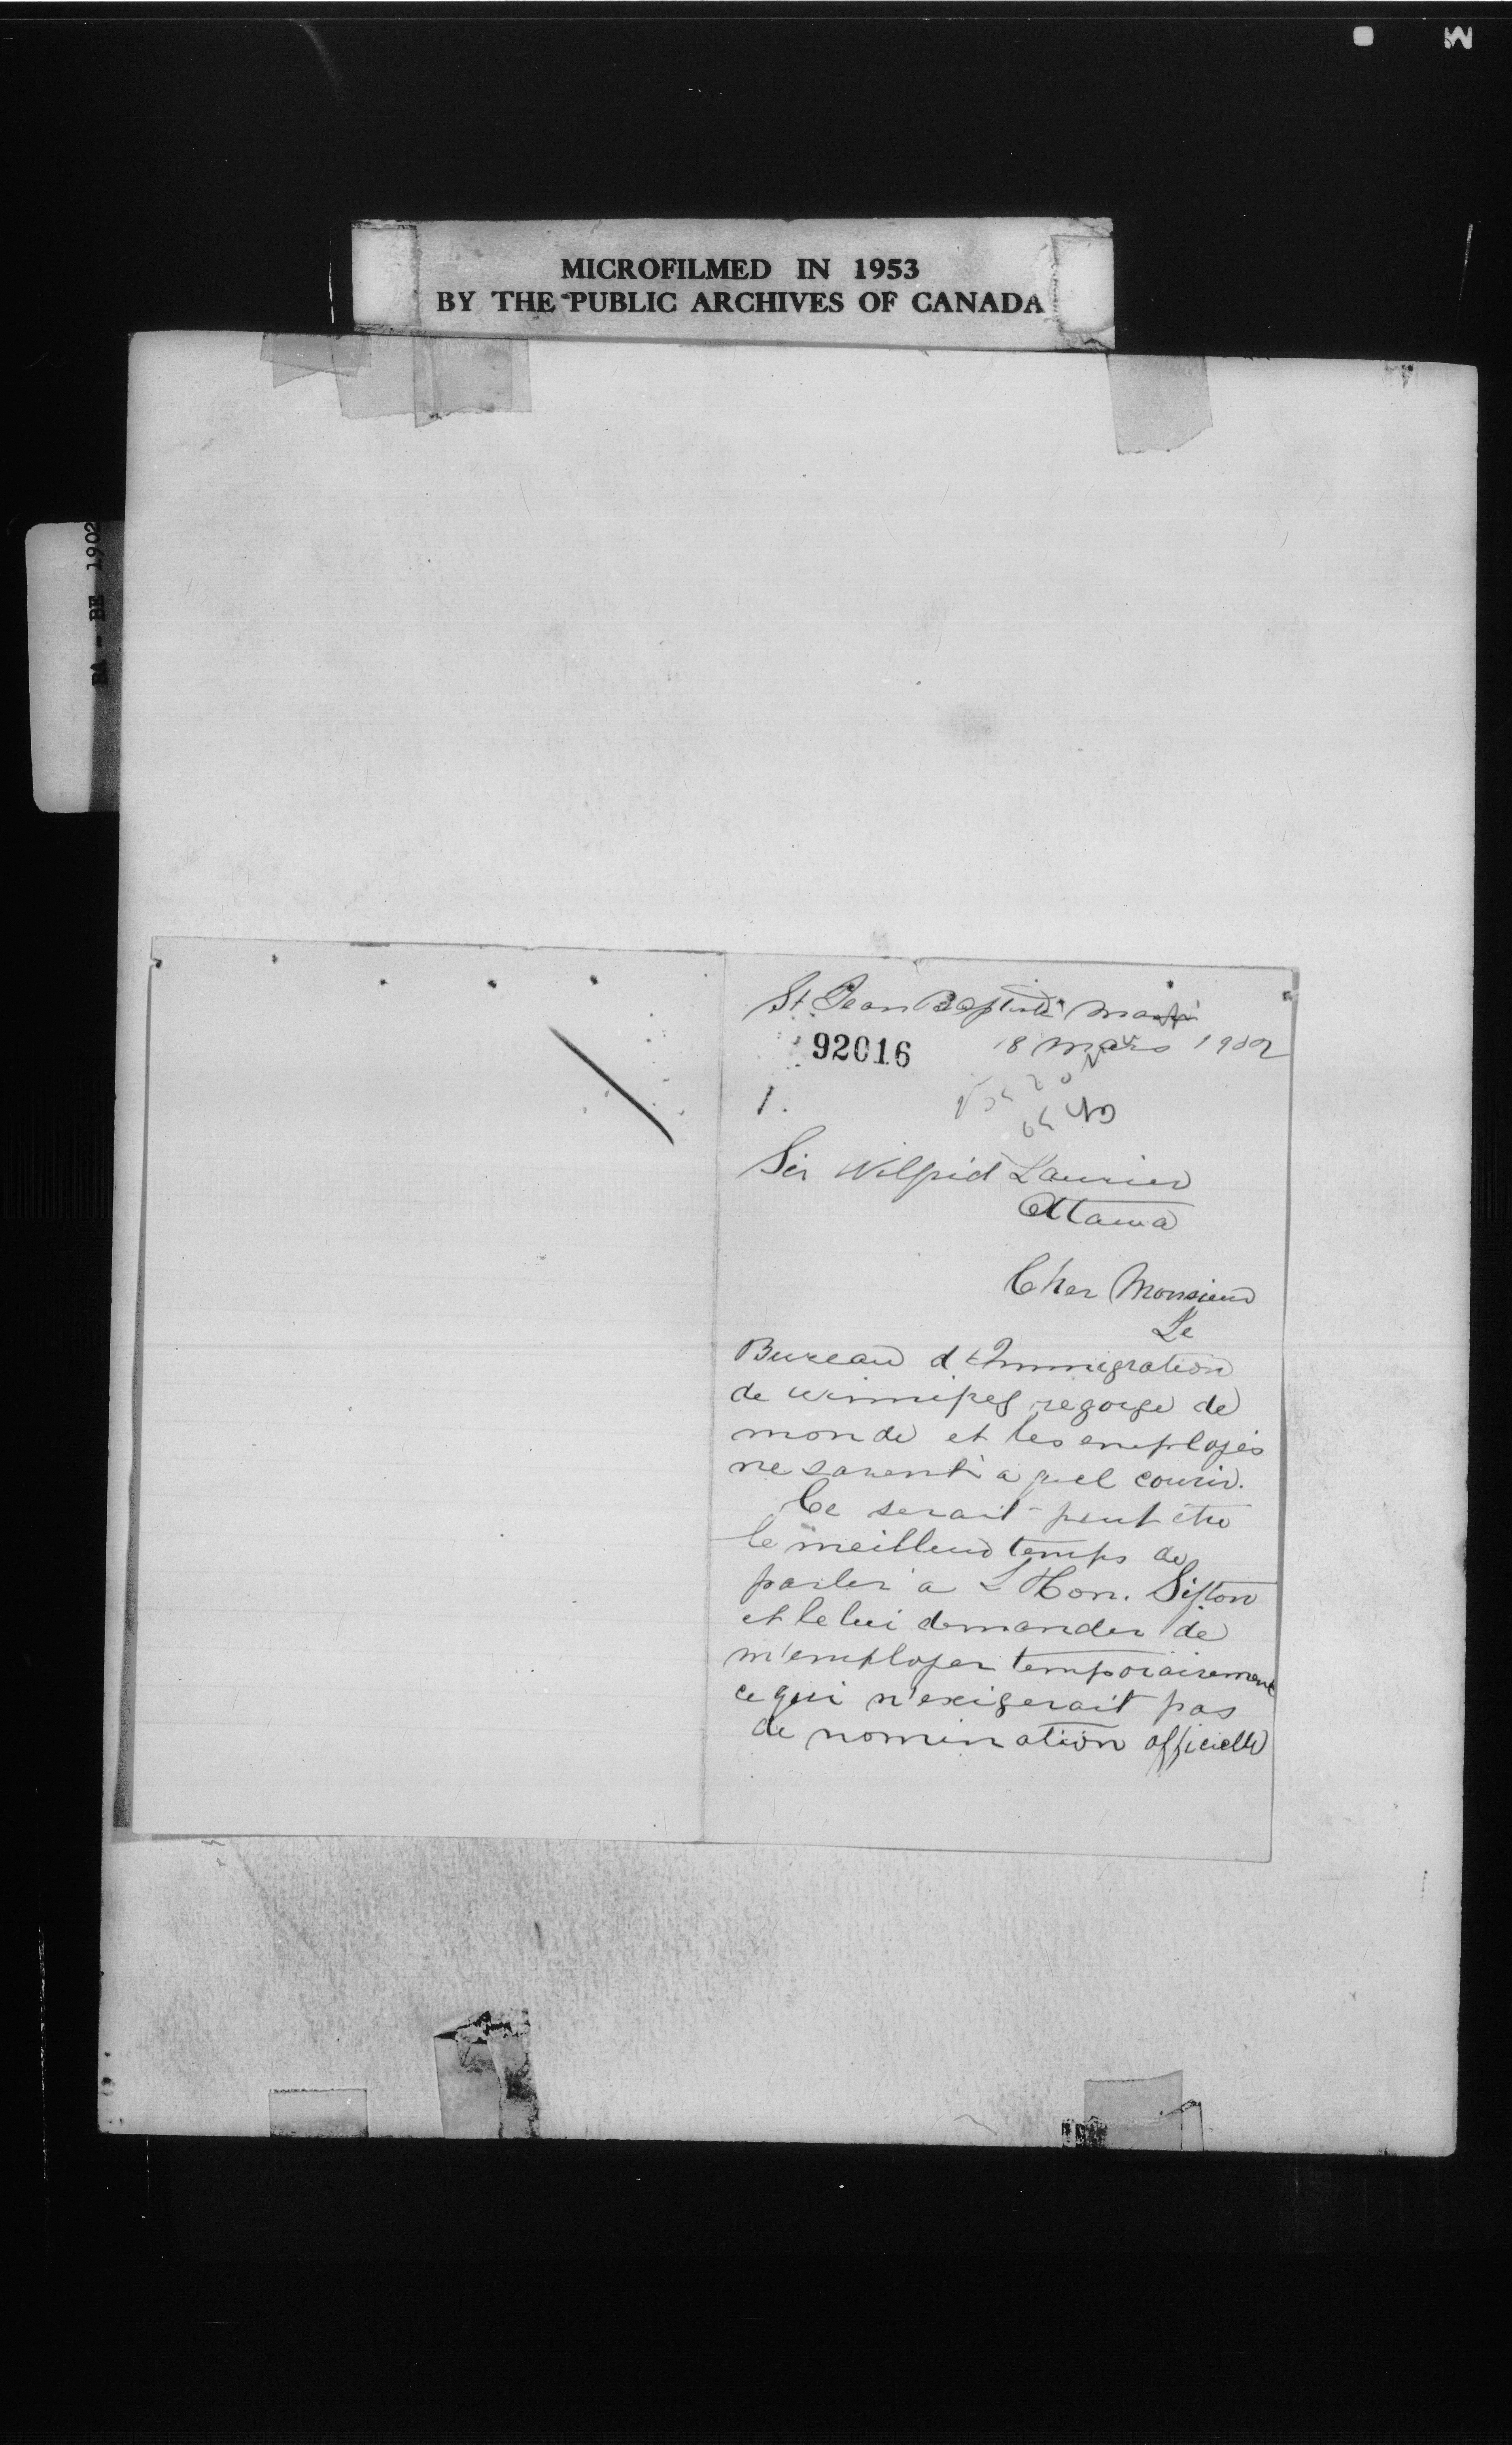 MICROFILMED IN 1953
BY THE PUBLIC ARCHIVES OF CANADA
BA - BE 1902
St Jean Baptiste Man
92016
18 Mars 1902
1.
Sir Wilfrid Laurier
Ottawa
Cher Monsieur
Le
Bureau d'Immigration
de Winnipeg regorge de
monde et les employés
ne savent à quel courir.
Ce serait peut être
le meilleur temps de
parler a L'Hon. Sifton
et le lui demander de
m'employer temporairement
ce qui n'exigerait pas
de nomination officielle